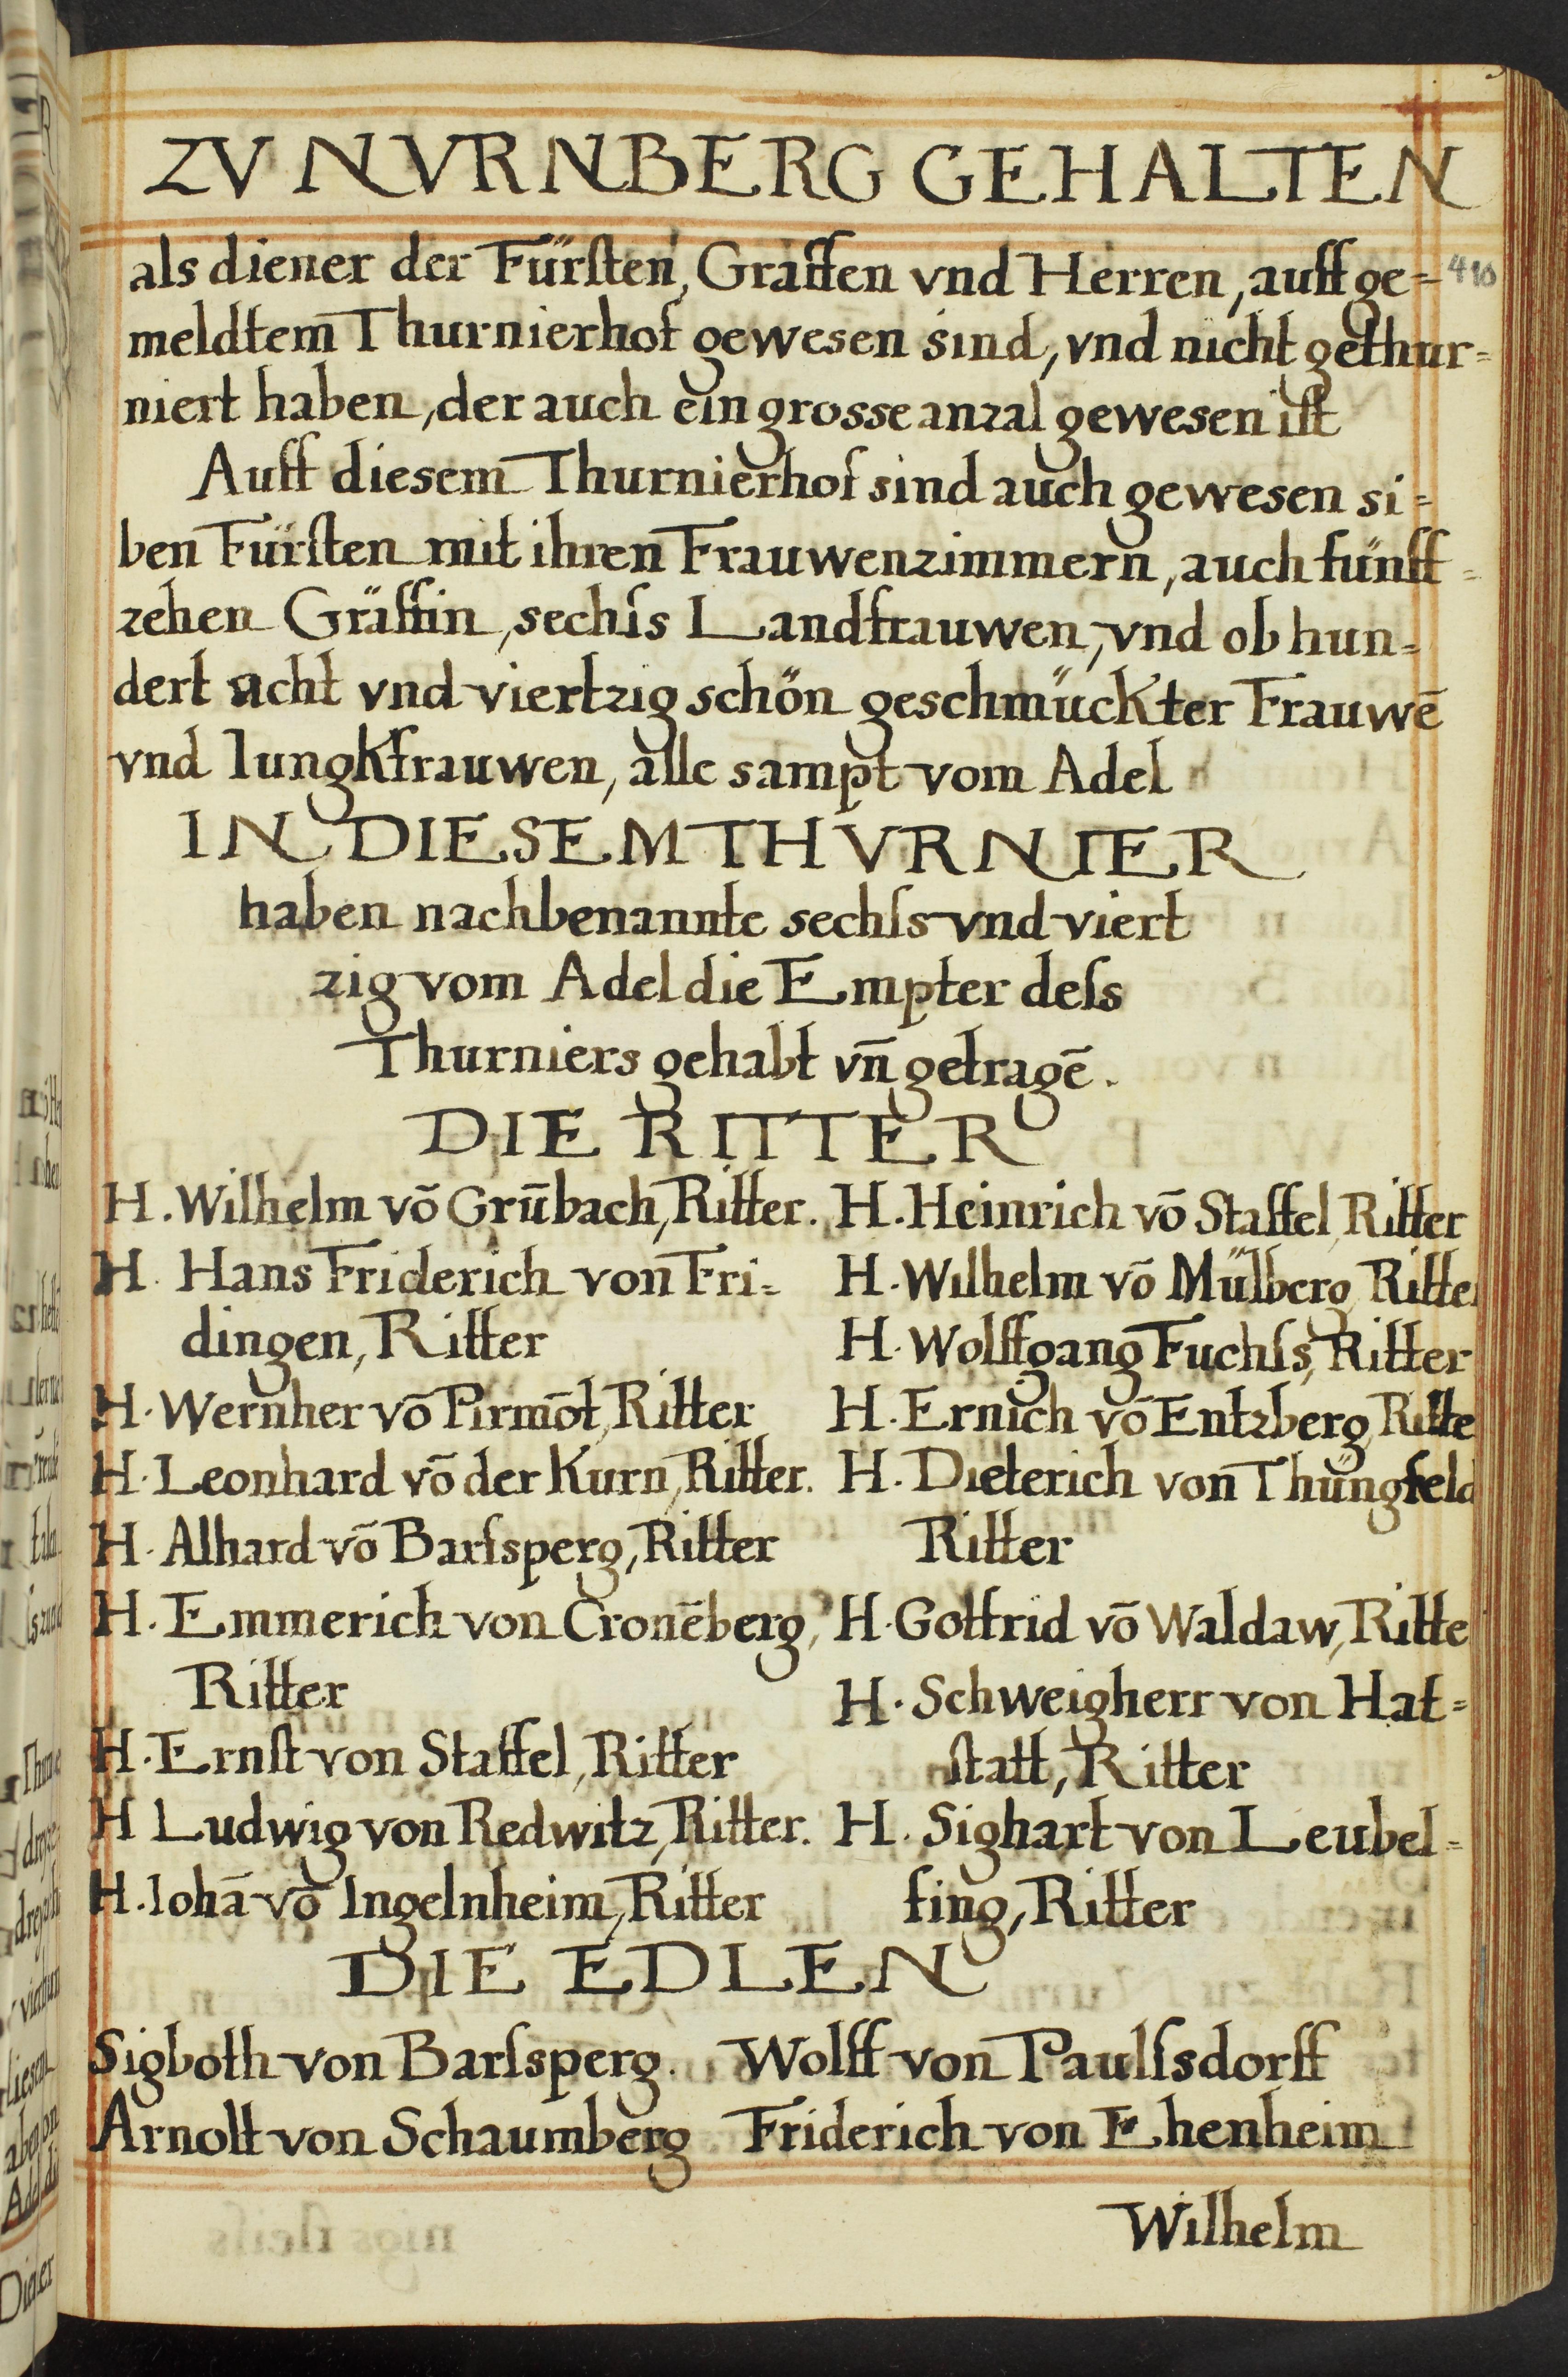 ZV NVRNBERG GEHALTEN
als diener der Fürsten, Graffen vnd Herren, auff ge=
410
meldtem Thurnierhof gewesen sind, vnd nicht gethur=
niert haben, der auch ein grosse anzal gewesen ist
Auff diesem Thurnierhof sind auch gewesen si=
ben Fürsten mit ihren Frauwenzimmern, auch fünff=
zehen Gräffin, sechſs Landfrauwen, vnd ob hun=
dert acht vnd viertzig schön geschmückter Frauwē
vnd Iungkfrauwen, alle sampt vom Adel
IN DIESEM THVRNIER
haben nachbenannte sechſs vnd viert
zig vom Adel die Empter deſs
Thurniers gehabt vn̄ getragē.
DIE RITTER
H. Wilhelm vō Grūbach, Ritter.
H. Hans Friderich von Fri=
dingen, Ritter
H. Wernher vō Pirmōt, Ritter
H. Leonhard vō der Kurn, Ritter.
H. Alhard vō Barſsperg, Ritter
H. Emmerich von Cronēberg,
Ritter
H. Ernst von Staffel, Ritter
H Ludwig von Redwitz, Ritter.
H. Iohā vō Ingelnheim, Ritter
H. Heinrich vō Staffel, Ritter
H. Wilhelm vō Mülberg, Ritte
H. Wolffgang Fuchſs, Ritter
H. Ernich vō Entzberg, Ritte
H. Dieterich von Thüngfeld
Ritter
H. Gotfrid vō Waldaw, Ritte
H. Schweigherr von Hat=
statt, Ritter
H. Sighart von Leubel=
fing, Ritter
DIE EDLEN
Sigboth von Barſsperg.
Arnolt von Schaumberg
Wolff von Paulſsdorff
Friderich von Ehenheim
Wilhelm